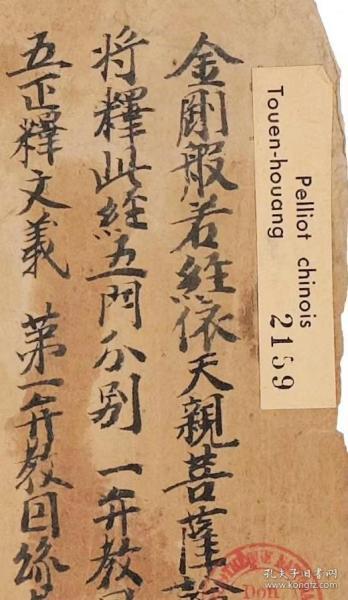 金剛般若經依天親菩薩論
將釋此經五門分別 一弁教
五正釋文義 第一弁教因緣
Pelliot chinois
Touen-houang
2159
孔夫子旧书网